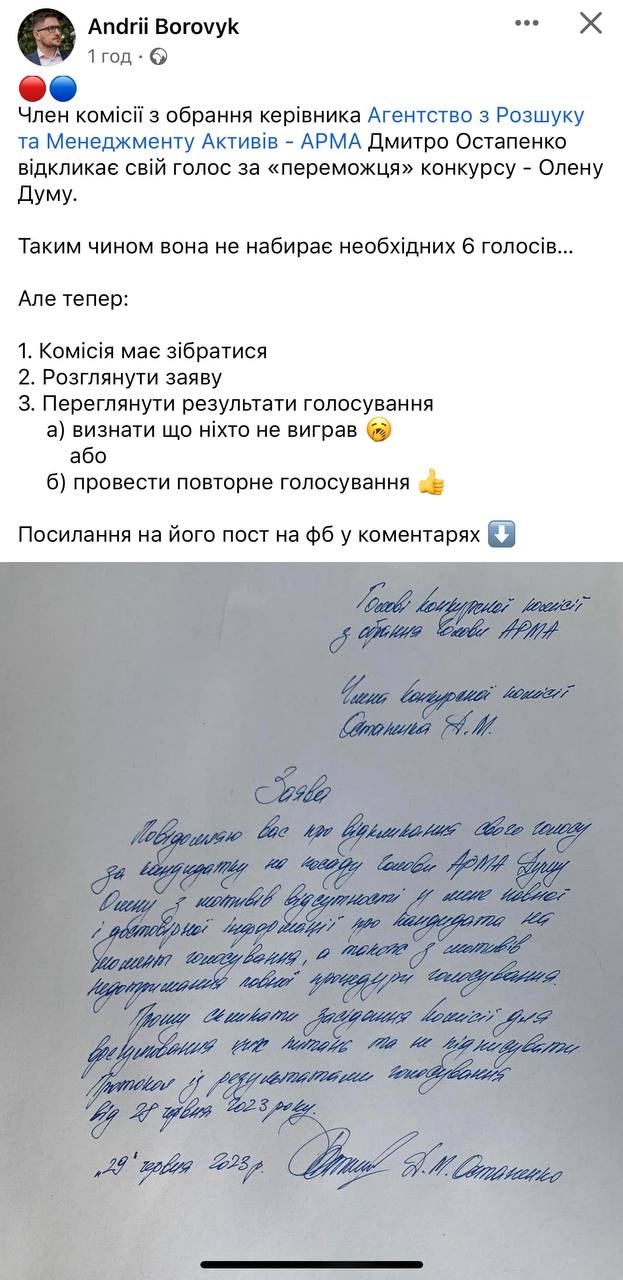 Andrii Borovyk
1 год
Член комісії з обрання керівника Агентство з Розшуку
та Менеджменту Активів - АРМА Дмитро Остапенко
відкликає свій голос за «переможця» конкурсу - Олену
Думу.
Таким чином вона не набирає необхідних 6 голосів...
Але тепер:
1. Комісія має зібратися
2. Розглянути заяву
3. Переглянути результати голосування
а) визнати що ніхто не виграв 🥱
або
б) провести повторне голосування 👍
Посилання на його пост на фб у коментарях ⬇️
Голові конкурсної комісії
з обрання Голови АРМА
Члена конкурсної комісії
Остапенка Д.М.
Заява
Повідомляю вас про відкликання свого голосу
за кандидатку на посаду Голови АРМА Думу
Олену з мотивів відсутності у мене повної
і достовірної інформації про кандидата на
момент голосування, а також з мотивів
недотримання повної процедури голосування.
Прошу скликати засідання комісії для
врегулювання цих питань та не підписувати
Протокол із результатами голосування
від 28 червня 2023 року.
"29" червня 2023 р. Д.М. Остапенко